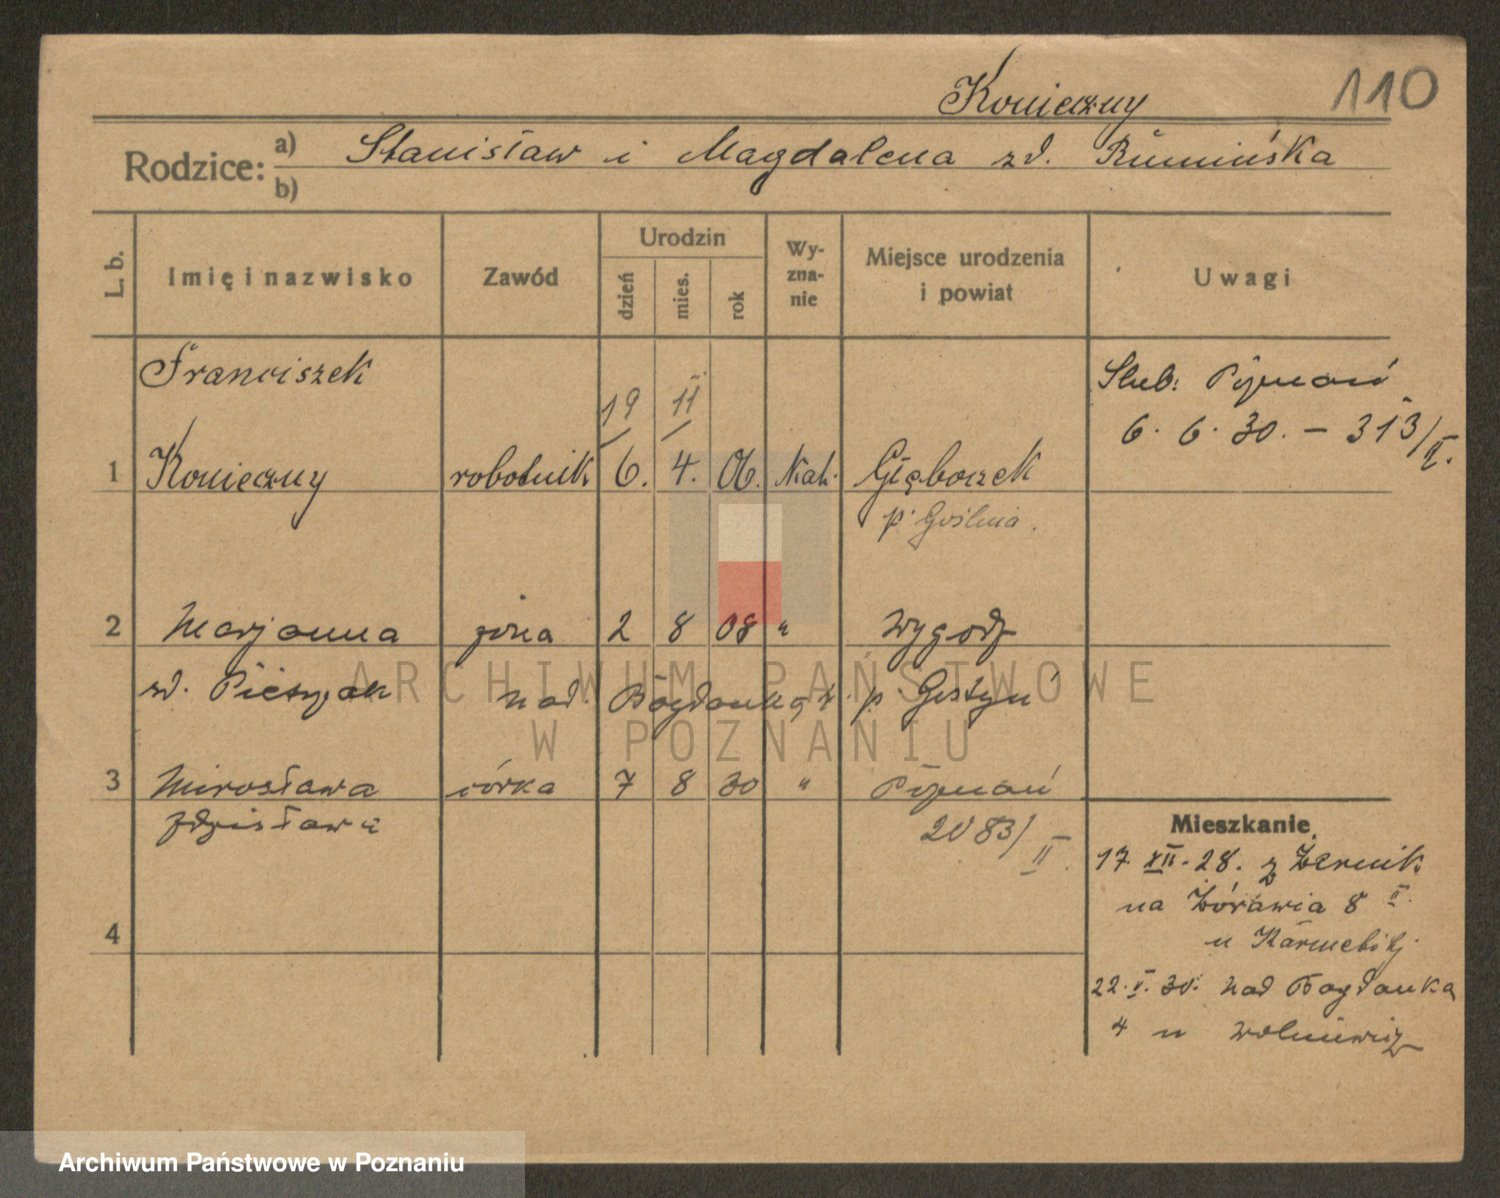 Konieczny
110
Rodzice: a) Stanisław i Magdalena zd. Rumińska
b)
L. b. Imię i nazwisko Zawód Urodzin dzień mies. rok Wy-zna-nie Miejsce urodzenia i powiat Uwagi
Franciszek 19 II Ślub: Poznań
6. 6. 30. — 313/II.
1 Konieczny robotnik 6. 4. 06. Kat. Głęboczek
p. Goślina.
2 Marjanna żona 2 8 08 "
zd. Pietrzak nad Bogdanką 4. p. Gostyń
3 Mirosława córka 7 8 30 " Poznań
Zdzisława 2083/II.
4
Mieszkanie.
17. XII. 28. z Żernik
na Żórawia 8 II.
u
22. V. 30. nad Bogdanką
4 u Wolniewicz
ARCHIWUM PAŃSTWOWE
W POZNANIU
Archiwum Państwowe w Poznaniu